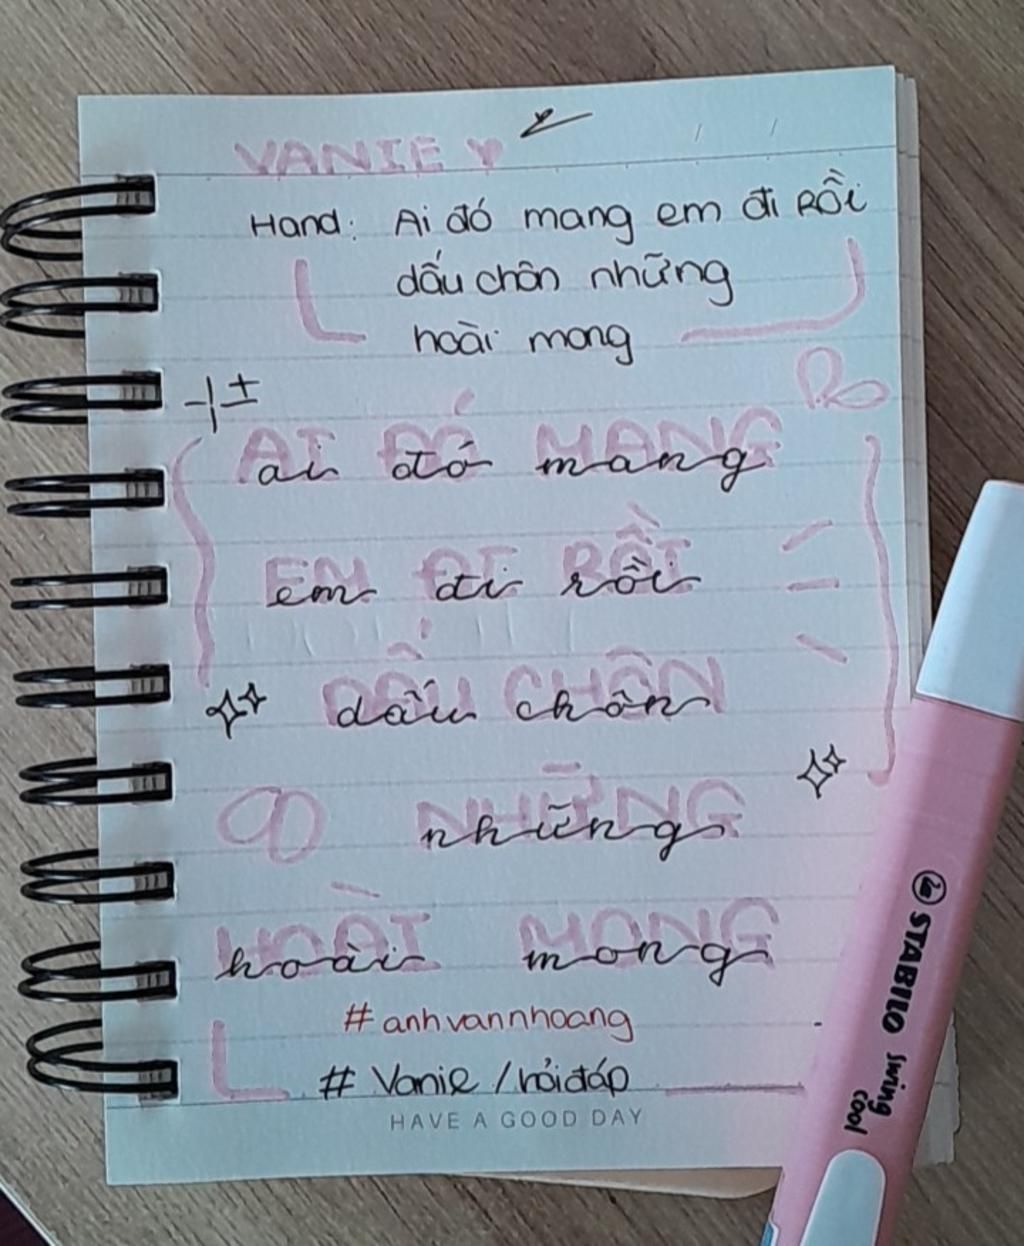 VANIE
Hand: Ai đó mang em đi Rồi
dấu chân những
hoài mong
AI ĐÓ MANG
ai đó mang
EM ĐI RỒI
em đi rồi
DẤU CHÂN
dấu chân
NHỮNG
những
HOÀI MONG
hoài mong
#anhvannhoang
# Vanie / hỏi đáp
HAVE A GOOD DAY
STABILO swing cool